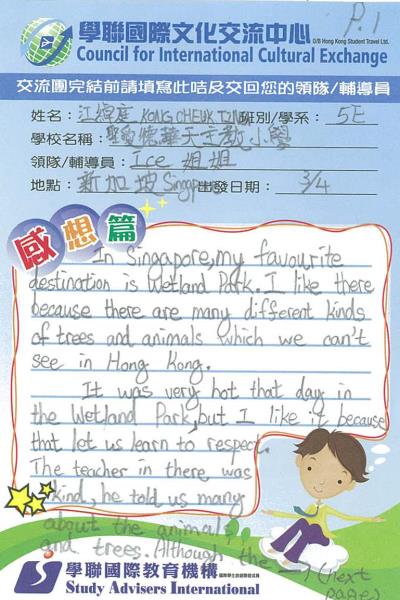 P.1
學聯國際文化交流中心 O/B Hong Kong Student Travel Ltd.
Council for International Cultural Exchange
交流團完結前請填寫此咭及交回您的領隊/輔導員
姓名：江焯庭 KONG CHEUK TING 班別/學系：5E
學校名稱：聖愛德華天主教小學
領隊/輔導員：Ice 姐姐
地點：新加坡 Singapore 出發日期：3/4
感想篇
In Singapore, my favourite
destination is Wetland Park. I like there
because there are many different kinds
of trees and animals which we can't
see in Hong Kong.
It was very hot that day in
the Wetland Park, but I like it because
that let us learn to respect.
The teacher in there was
kind, he told us many
about the animals
and trees. Although the
(next
page)
學聯國際教育機構
Study Advisers International